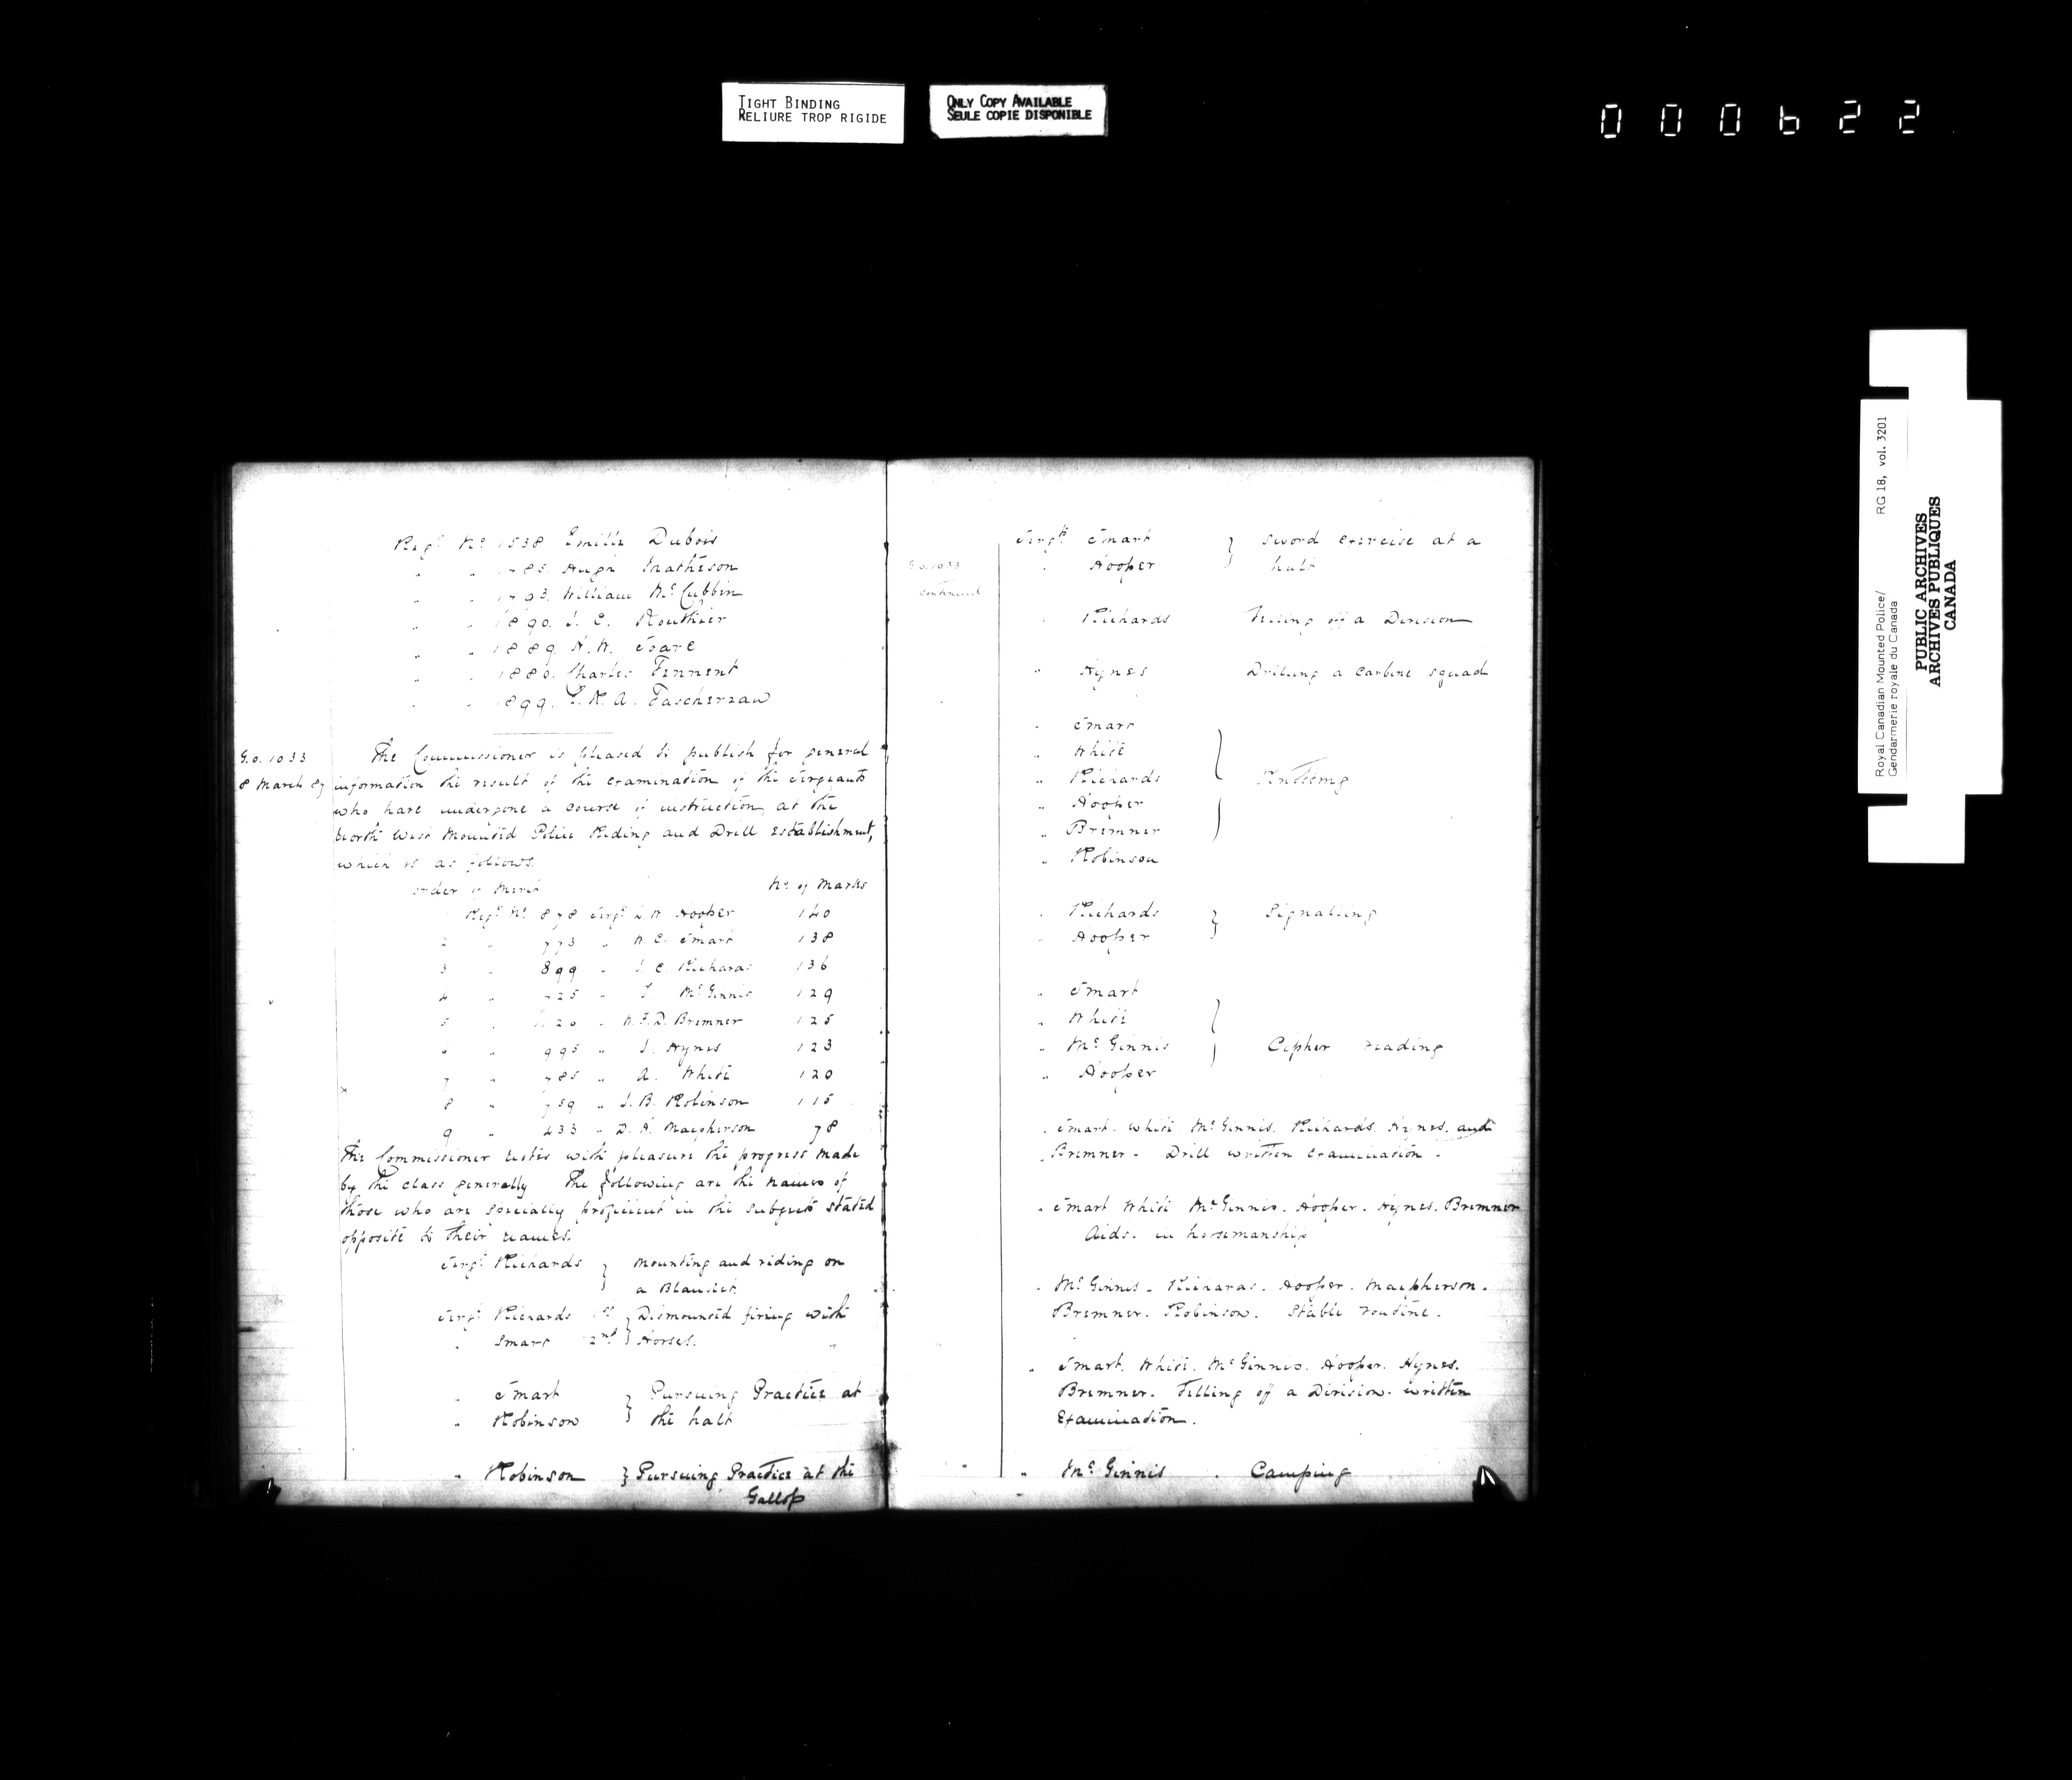 TIGHT BINDING
RELIURE TROP RIGIDE
ONLY COPY AVAILABLE
SEULE COPIE DISPONIBLE
000622
Regl No 1538 Emille Dubois
" " 1785 Hugh Mathison
" " 1793 William McCubbin
" " 1890 J. C. Routhier
" " 1889 H. W. Soare
" " 1880 Charles Tennent
" " 1899 E. R. A. Taschereau
G.O. 1033 The Commissioner is pleased to publish for general
8 March 87 information the result of the examination of the Sergeants
who have undergone a course of instruction at the
North West Mounted Police Riding and Drill establishment,
which is as follows.
order of Merit No of Marks
Regl No 878 Sergt Hooper 140
2 " 773 " W. C. Smart 138
3 " 899 " J. C. Richards 136
4 " 725 " J. McGinnis 129
5 " 20 " W. F. D. Bremner 125
6 " 995 " J. Hynes 123
7 " 785 " A. White 120
8 " 759 " J. B. Robinson 115
9 " 433 " D. H. Macpherson 78
The Commissioner notes with pleasure the progress made
by the class generally The following are the names of
those who are specially proficient in the subjects stated
opposite to their names.
Sergt Richards } Mounting and riding on
a Blanket
Sergt Richards 1st } Dismounted firing with
" Smart 2nd } Horses.
" Smart } Pursuing Practice at
" Robinson } the halt
" Robinson } Pursuing Practice at the
Gallop
G.O. 1033
continued
Sergts Smart } Sword exercise at a
" Hooper } halt
" Richards Telling off a Division
" Hynes Drilling a Carbine squad
" Smart
" White
" Richards Knotting
" Hooper
" Bremner
" Robinson
" Richards } Signalling
" Hooper
" Smart
" White
" McGinnis Cipher reading
" Hooper
" Smart. White. McGinnis. Richards. Hynes. and
Bremner. Drill written examination.
" Smart White McGinnis. Hooper. Hynes. Bremner
Aids. in horsemanship
" McGinnis. Richards. Hooper. Macpherson.
Bremner. Robinson. Stable routine.
" Smart. White. McGinnis. Hooper. Hynes.
Bremner. Telling off a Division. written
Examination.
" McGinnis. Camping
Royal Canadian Mounted Police/
Gendarmerie royale du Canada
RG 18, vol. 3201
PUBLIC ARCHIVES
ARCHIVES PUBLIQUES
CANADA